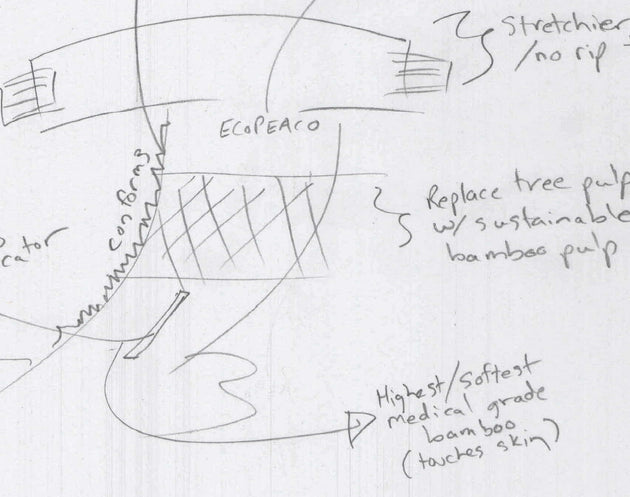 Stretchier
/no rip
ECOPEACO
conforms
Replace tree pulp
w/ sustainable
bamboo pulp
cator
Highest/Softest
medical grade
bamboo
(touches skin)